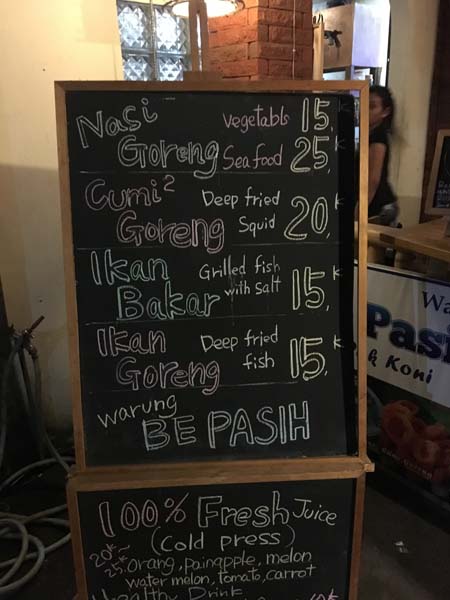 Nasi Vegetable 15,K
Goreng Sea food 25,K
Cumi² Deep fried
Goreng Squid 20,K
Ikan Grilled fish
Bakar with salt 15,K
Ikan Deep fried
Goreng fish 15,K
warung
BE PASIH
100% Fresh Juice
(Cold press)
20K~
25K orang, painapple, melon
water melon, tomato, carrot
Healthy Drink
Wa
Pasi
k Koni